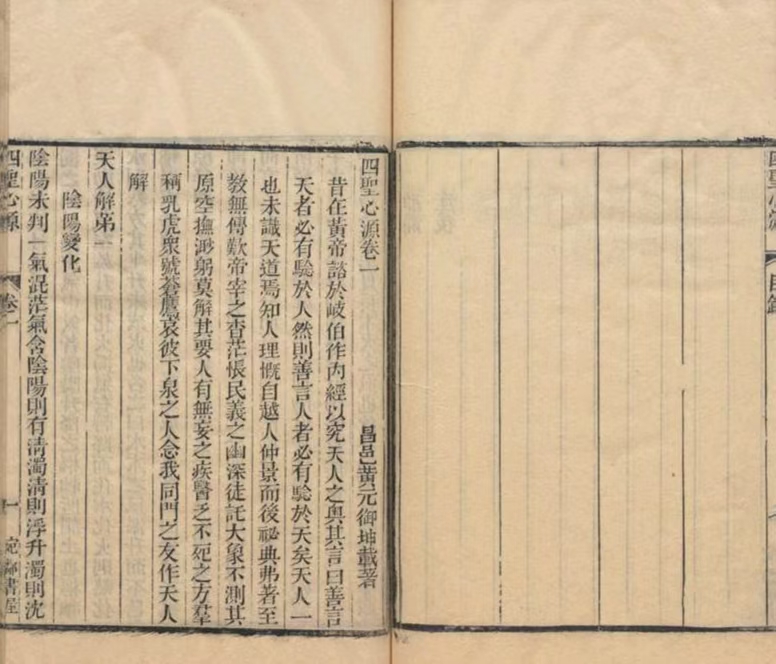 四聖心源
目錄
四聖心源卷一
昌邑黃元御坤載著
昔在黃帝諮於岐伯作內經以究天人之奧其言曰善言
天者必有驗於人然則善言人者必有驗於天矣天人一
也未識天道焉知人理慨自越人仲景而後祕典弗著至
教無傳歎帝宰之杳茫悵民義之幽深徒託大象不測其
原空撫渺躬莫解其要人有無妄之疾醫乏不死之方羣
稱乳虎衆號蒼鷹哀彼下泉之人念我同門之友作天人
解
天人解第一
陰陽變化
陰陽未判一氣混茫氣含陰陽則有清濁清則浮升濁則沈
四聖心源
卷一
一
宛鄰書屋